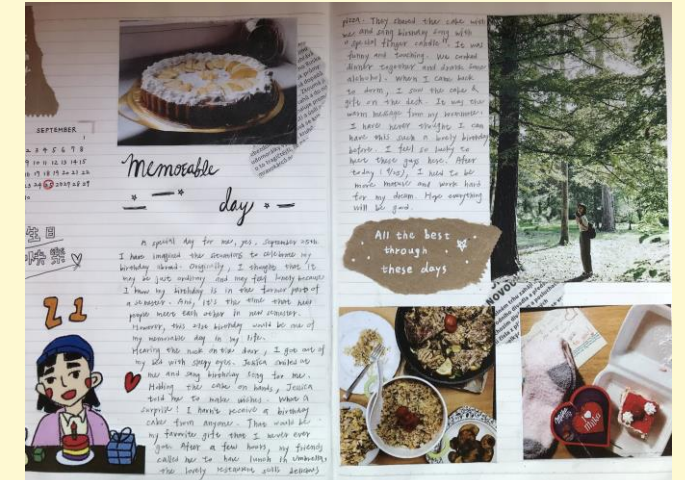 SEPTEMBER
1
2 3 4 5 6 7 8
10 11 12 13 14 15
17 18 19 20 21 22
生日
快樂
21
memorable
day
A special day for me, yes, September
I have imagined the to celebrate my
birthday abroad. Originally, I thought that it
may be just ordinary and may feel lonely because
I know my birthday is in the former part of
a semester. And, it's the time that new
people meet each other in new semester.
However, this 21st birthday would be one of
my memorable day in my life.
Hearing the knock on the door, I got out of
my bed with eyes. Jessica smiled at
me and sang birthday song for me.
Holding the cake on hands, Jessica
told me to make wishes. What a
surprise! I haven't receive a birthday
cake from anyone. That would be
my favorite gift that I never ever
got. After a few hours, my friends
called me to have lunch in
the lovely restaurant with
pizza. They shared the cake with
me and sang birthday song with
a special "finger candle". It was
funny and touching. We cooked
dinner together and drank some
alchohol. When I came back
to dorm, I saw the cake &
gift on the desk. It was the
warm message from my roommate.
I have never thought I can
have this such a lovely birthday
before. I feel so lucky to
have these guys here. After
today, I need to be
more mature and work hard
for my dream. Hope everything
will be good.
All the best
through
these days